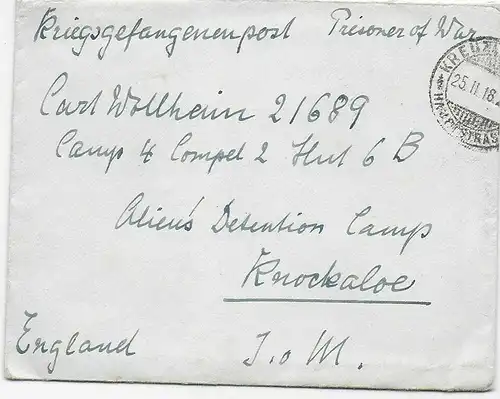 Kriegsgefangenenpost Prisoner of War
KREUZL
25.II.16.
STRAS
Carl Wollheim 21689
Camp 4 Compd 2 Hut 6 B
Aliens Detention Camp
Knockaloe
England I. o M.